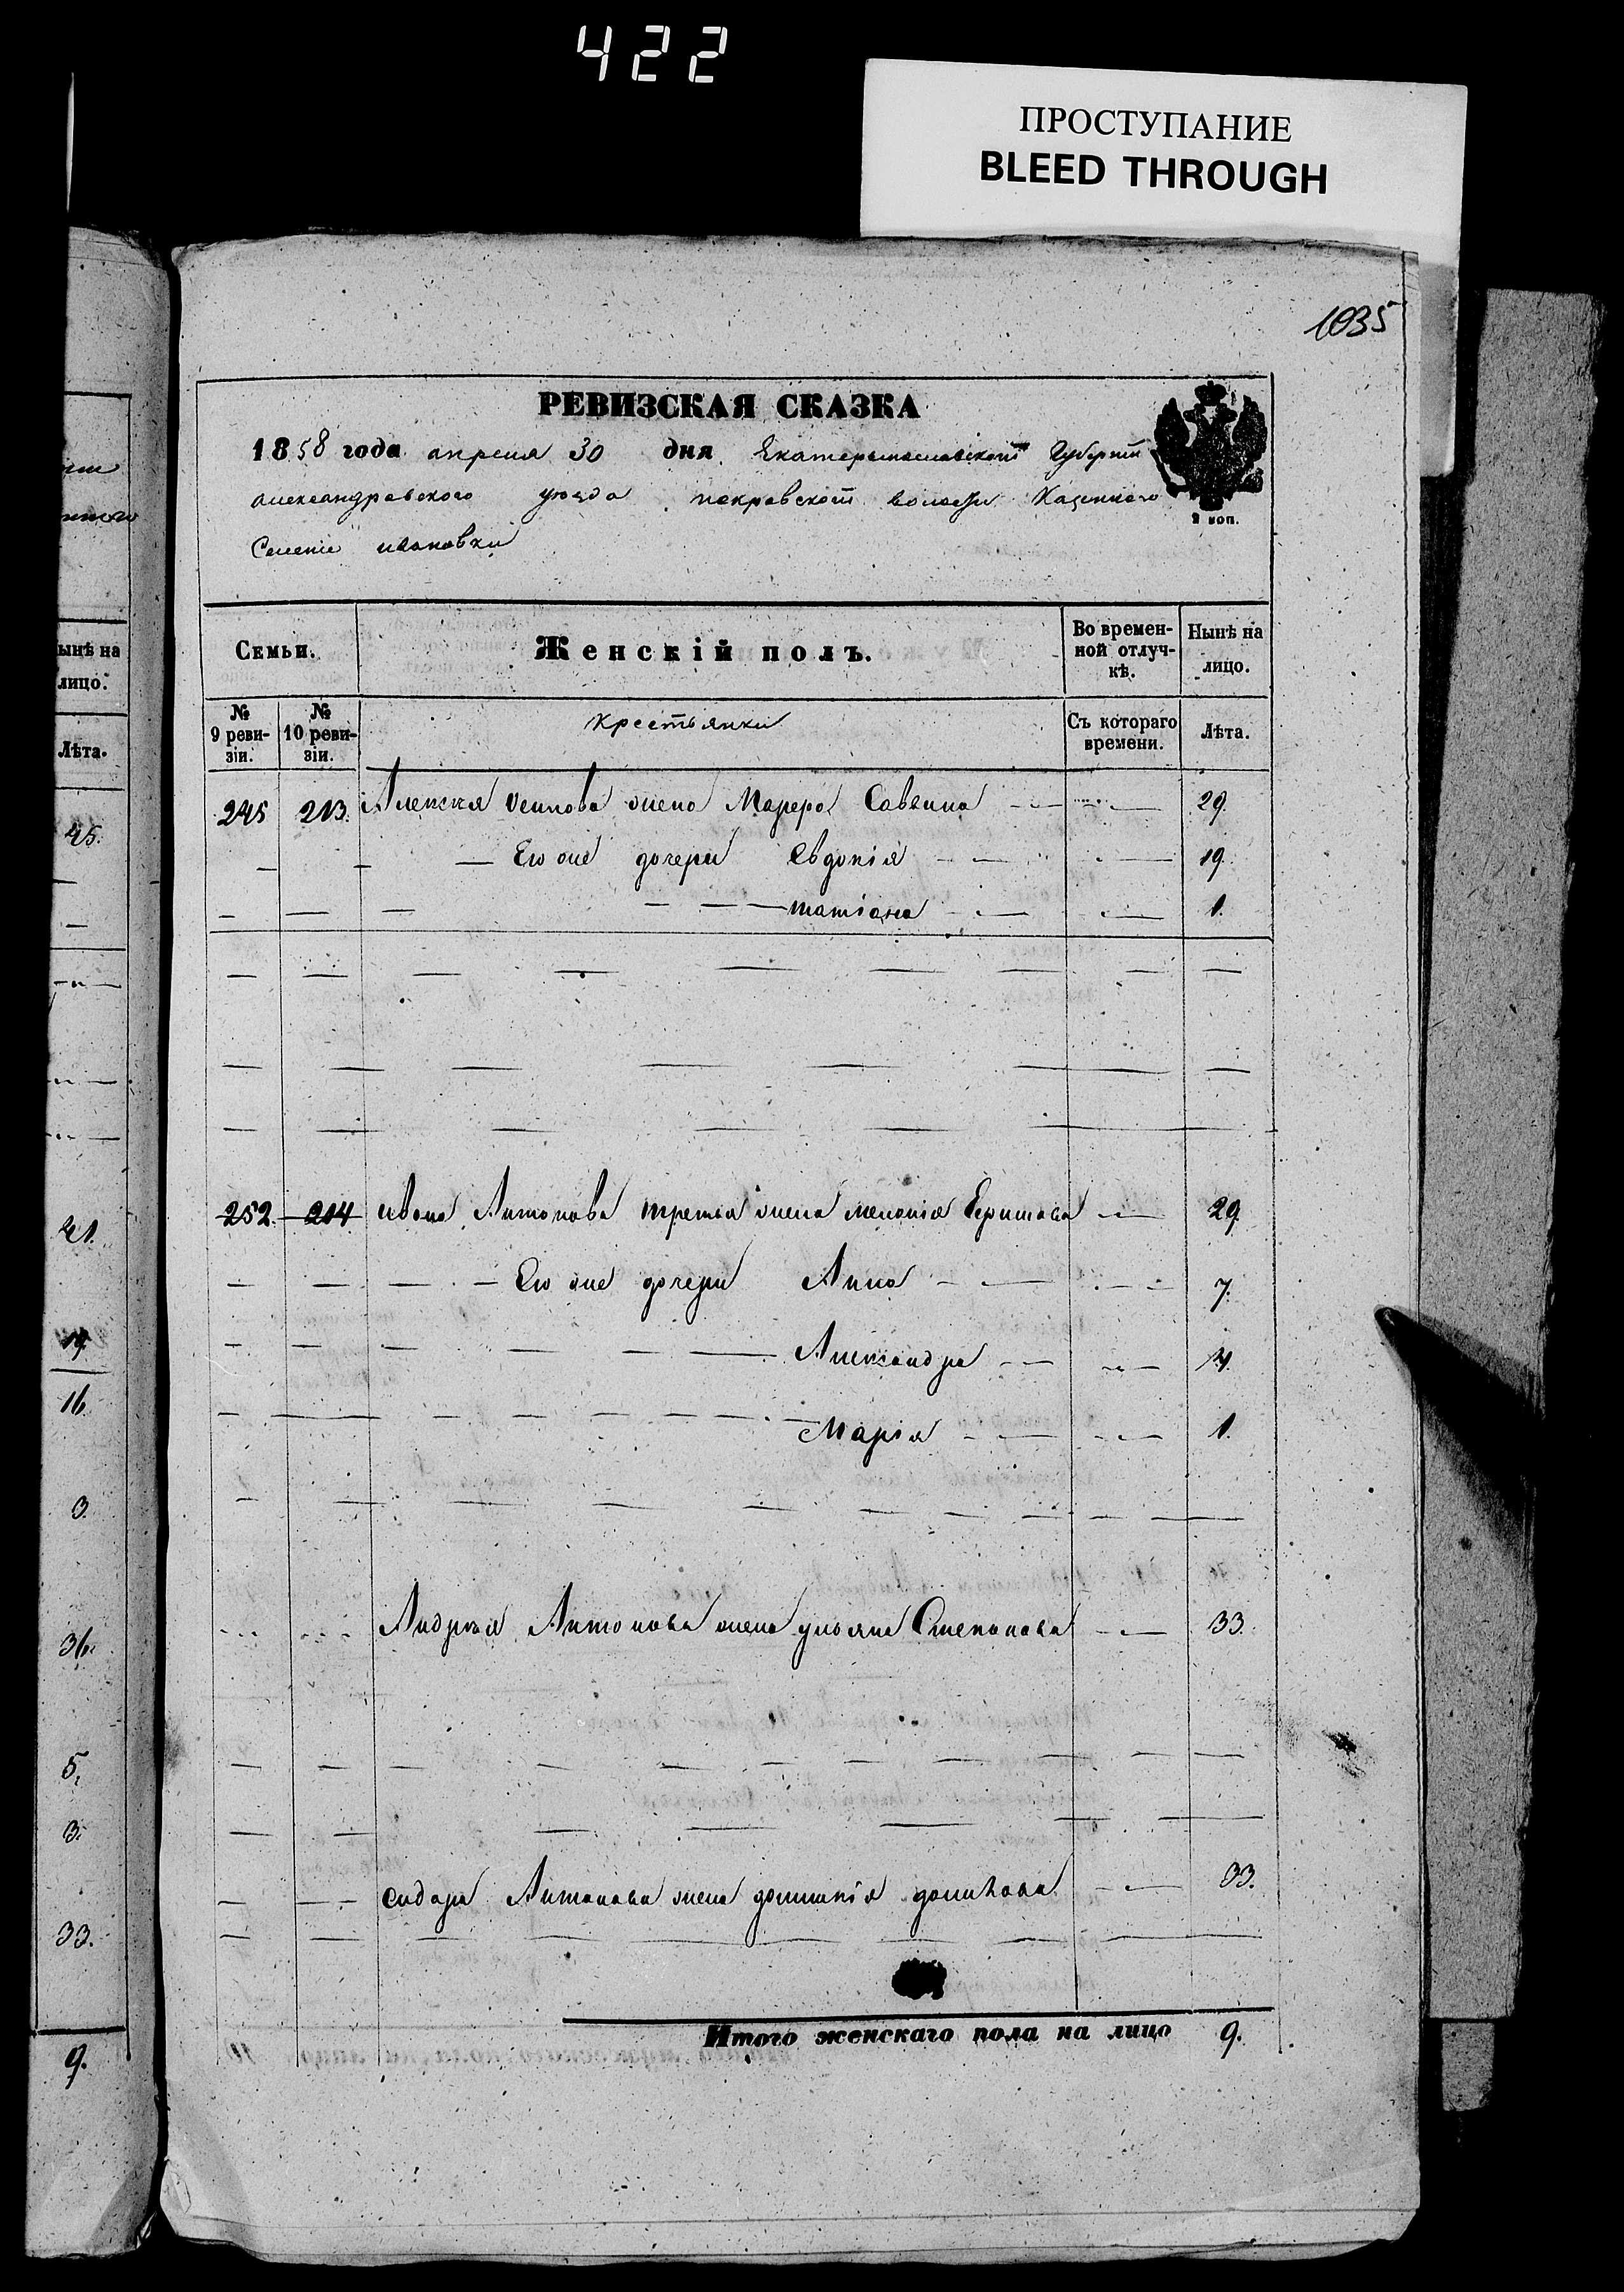 422
ПРОСТУПАНИЕ
BLEED THROUGH
1035
РЕВИЗСКАЯ СКАЗКА
1858 года апреля 30 дня Екатеринославской Губернии
александровского уезда покровской волости Казенного
Селения ивановки
2 коп.
Семьи.
Женскій полъ.
Во времен-
ной отлуч-
кѣ.
Нынѣ на
лицо.
№
9 реви-
зіи.
№
10 реви-
зіи.
крестьянки
Съ котораго
времени.
Лѣта.
245 213. Алексея жена Саввина 29.
Его же дочери Евдокія 19.
татіана 1.
252. 214 ивана Антонова третья жена меланія 29
Его же дочери Анна 7.
Александра 4.
Марія 1.
Андрея Антонова жена ульяна Степанова 33.
сидора Антонова жена 33.
Итого женскаго пола на лицо 9.
ынѣ на
лицо.
Лѣта.
45.
41.
19.
16.
3.
36.
5.
3.
33.
9.